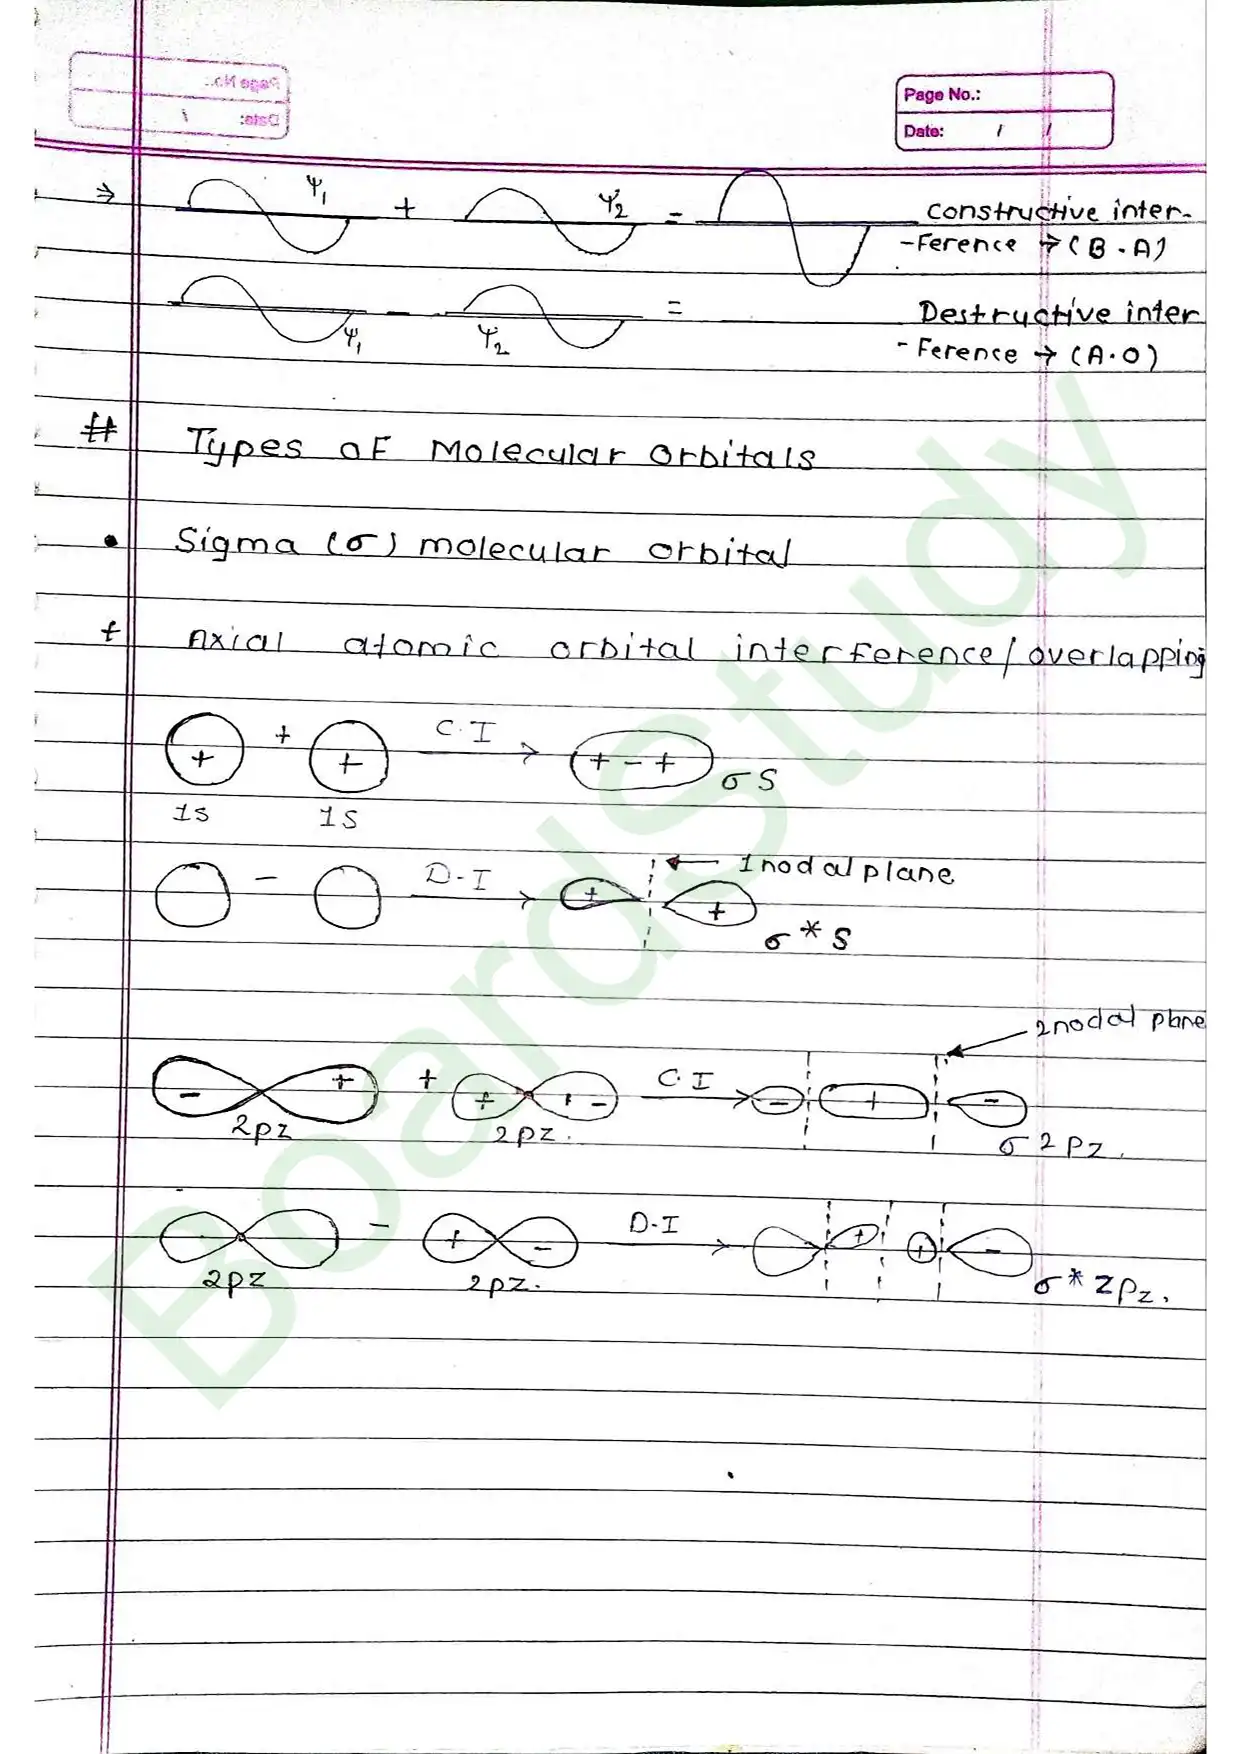 Page No.:
Date: / /
⇒ Ψ1 + Ψ2 = constructive inter-
-Ference → (B.A)
Ψ1 - Ψ2 = Destructive inter
-Ference → (A.O)
# Types oF Molecular orbitals
• Sigma (σ) molecular orbital
Axial atomic orbital interference/overlapping
+ + + C.I → + - + σ S
1s 1S
- D-I → + + 1 nodal plane
σ * S
2 nodal plane
- + + + - C.I → - + - σ 2Pz.
2pz 2pz.
- + - D.I → + + - σ* 2pz.
2pz 2pz.
BoardStudy